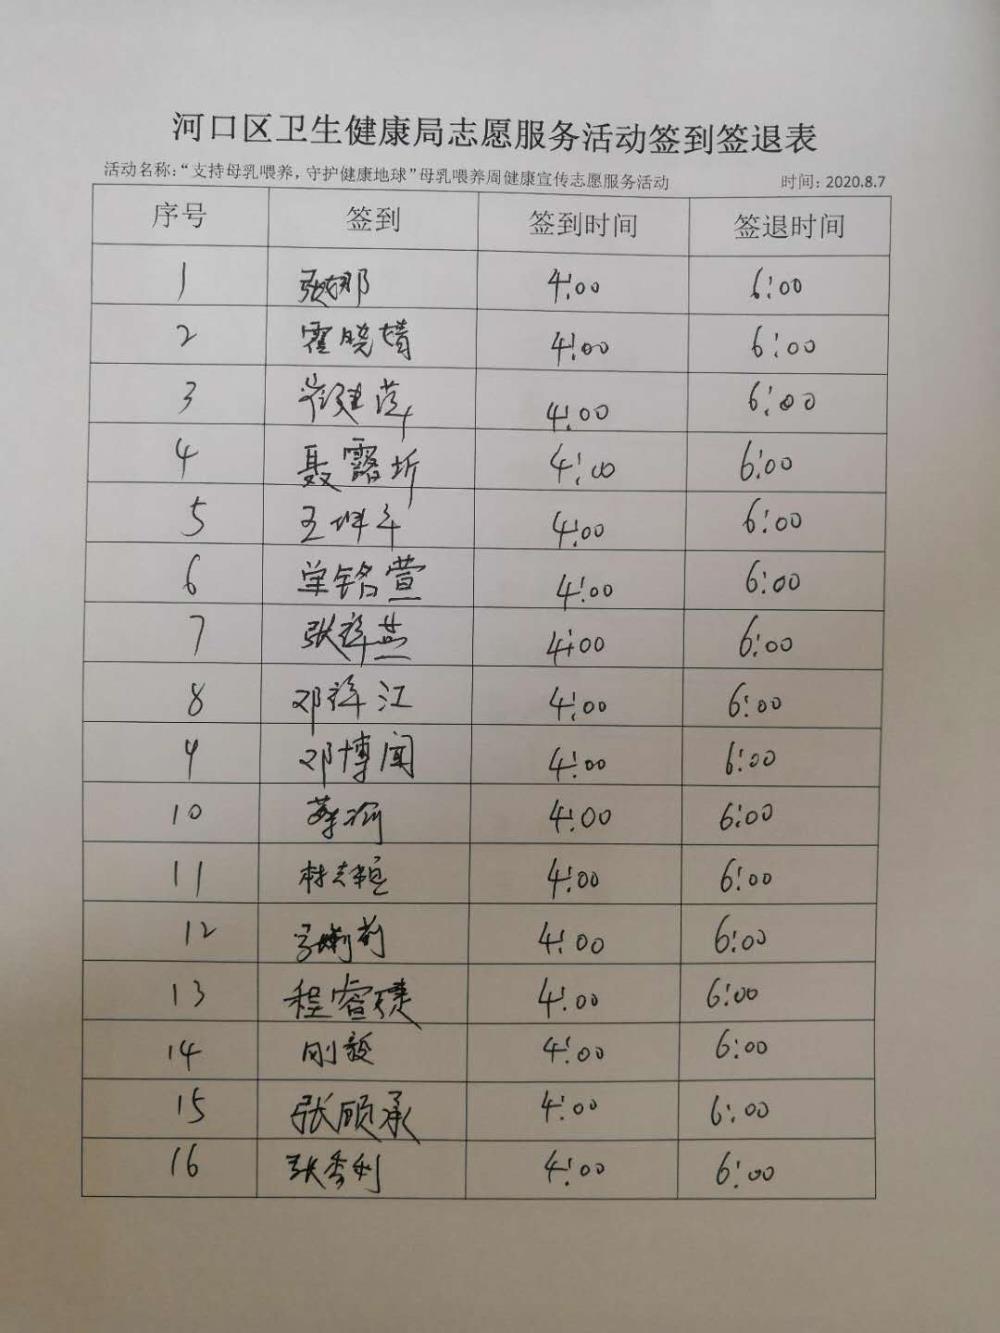 河口区卫生健康局志愿服务活动签到签退表
活动名称:“支持母乳喂养,守护健康地球”母乳喂养周健康宣传志愿服务活动 时间: 2020.8.7
序号 签到 签到时间 签退时间
1 张娜 4:00 6:00
2 霍晓婧 4:00 6:00
3 4:00 6:00
4 聂露圻 4:00 6:00
5 王 4:00 6:00
6 单铭萱 4:00 6:00
7 张 燕 4:00 6:00
8 邓 江 4:00 6:00
9 邓博闻 4:00 6:00
10 4:00 6:00
11 林志 4:00 6:00
12 莉 4:00 6:00
13 程睿 4:00 6:00
14 刚毅 4:00 6:00
15 张顾承 4:00 6:00
16 张秀利 4:00 6:00